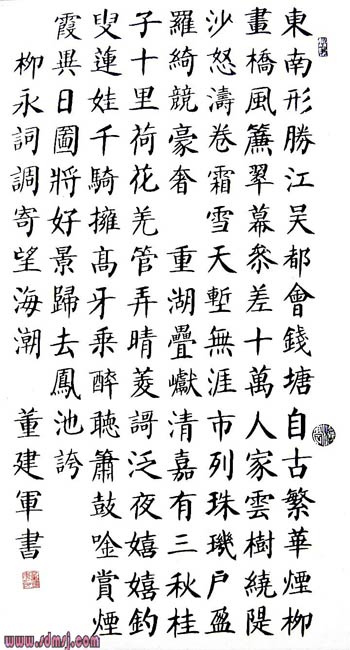 東南形勝江吴都會錢塘自古繁華煙柳
畫橋風簾翠幕參差十萬人家雲樹繞隄
沙怒濤卷霜雪天塹無涯市列珠璣户盈
羅綺競豪奢 重湖疊巘清嘉有三秋桂
子十里荷花羌管弄晴菱謌泛夜嬉嬉釣
叟蓮娃千騎擁髙牙乘醉聽簫鼓唫賞煙
霞異日圖將好景歸去鳳池誇
柳永詞調寄望海潮 董建軍書
www.sdmsj.com